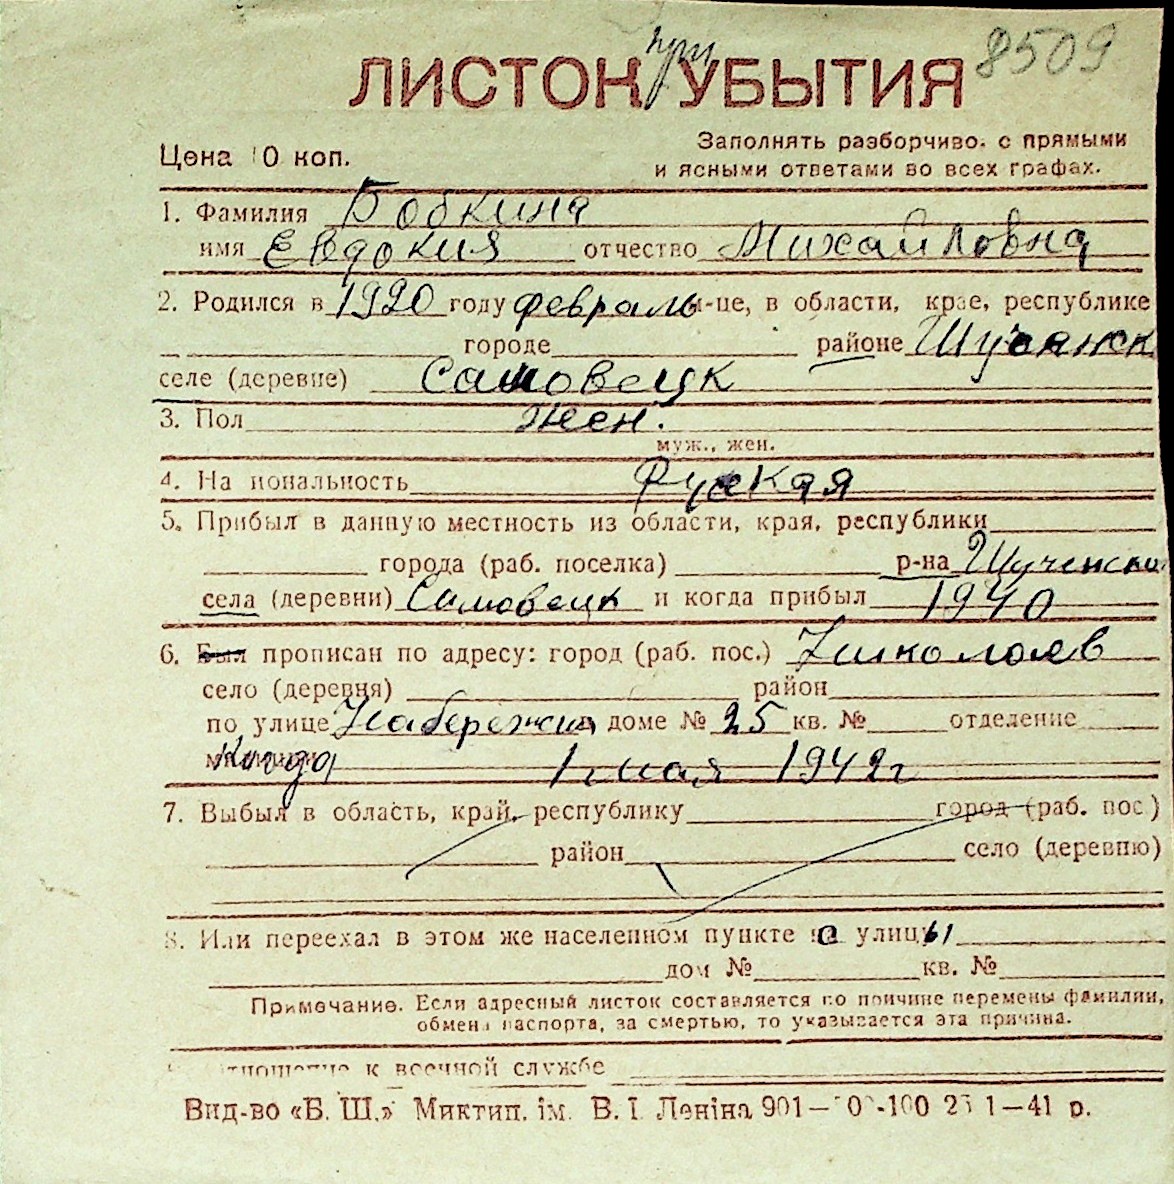 8509
при
ЛИСТОК УБЫТИЯ
Цена 10 коп.
Заполнять разборчиво, с прямыми
и ясными ответами во всех графах.
1. Фамилия Бобкина
имя Евдокия отчество Михайловна
2. Родился в 1920 году февраль м-це, в области, крае, республике
городе районе Шучанск
селе (деревне) Самовецк
3. Пол жен.
муж., жен.
4. Национальность Руская
5. Прибыл в данную местность из области, края, республики
города (раб. поселка) р-на Щученски
села (деревни) Самовецк и когда прибыл 1940
6. Был прописан по адресу: город (раб. пос.) Николаев
село (деревня) район
по улице Набережна в доме № 25 кв. № отделение
Когда 1 мая 1942 г
7. Выбыл в область, край, республику город (раб. пос.)
район село (деревню)
8. Или переехал в этом же населенном пункте с улицы
дом № кв. №
Примечание. Если адресный листок составляется по причине перемены фамилии,
обмена паспорта, за смертью, то указывается эта причина.
отношение к военной службе
Вид-во «Б. Ш.» Миктип. ім. В. І. Леніна 901— 1—41 р.